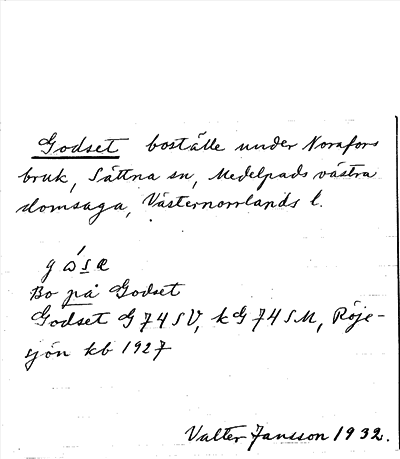 Godset boställe under Norafors
bruk, Sättna sn, Medelpads västra
domsaga, Västernorrlands l.
Bo på Godset
Godset G 74 SV, k G 74 SM, Röje-
sjön kb 1927
Valter Jansson 1932.